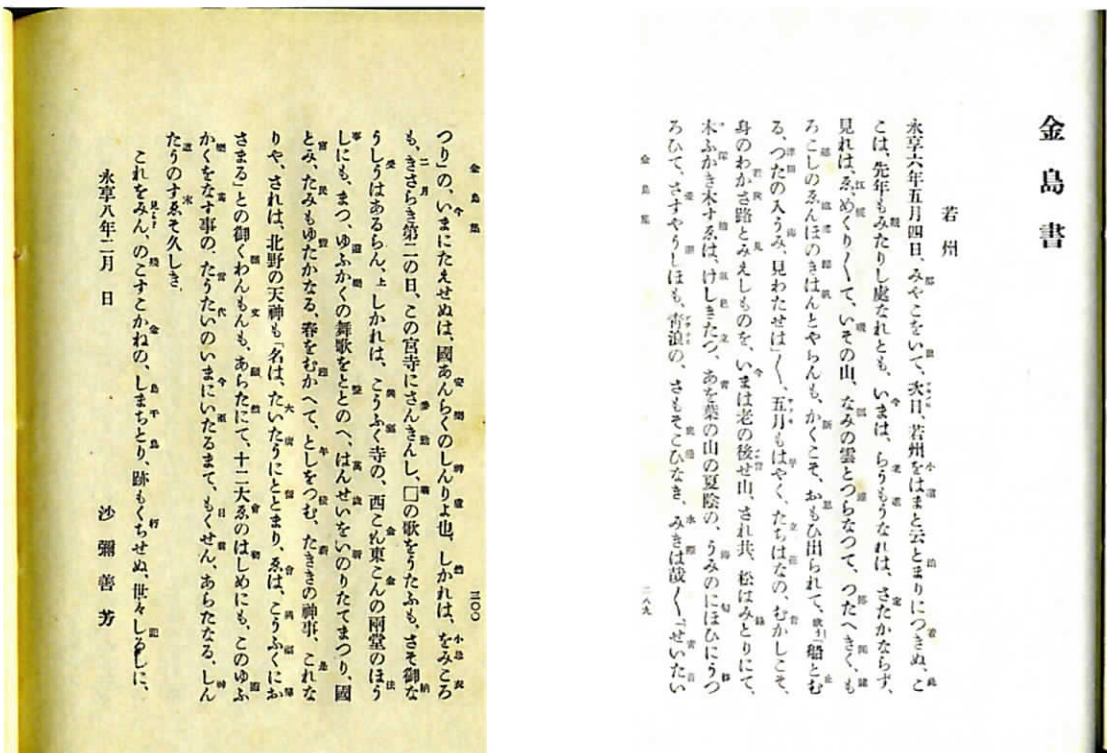 金島書
若州
永享六年五月四日、みやこをいて、次日、若州をはまと云とまりにつきぬ、こ
こは、先年もみたりし處なれとも、いまは、らうもうなれは、さたかならず、
見れは、ゑ、めくり〳〵て、いその山、なみの雲とつらなつて、つたへきく、も
ろこしのゑんほのきはんとやらんも、かくこそ、おもひ出られて、「船とむ
る、つたの入うみ、見わたせは」〳〵、五月もはやく、たちはなの、むかしこそ、
身のわかさ路とみえしものを、いまは老の後せ山、され共、松はみとりにて、
木ふかき木すゑは、けしきたつ、あを葉の山の夏陰の、うみのにほひにうつ
ろひて、さすやうしほも、青浪の、さもそこひなき、みきは哉〳〵、「せいたい
金島集
二八九
金島集
三〇〇
つり」の、いまにたえせぬは、國あんらくのしんりよ也、しかれは、をみころ
も、きさらき第二の日、この宮寺にさんきんし、□の歌をうたふも、さそ御な
うしうはあるらん、上しかれは、こうふく寺の、西こん東こんの兩堂のほう
しにも、まつ、ゆふかくの舞歌をととのへ、はんせいをいのりたてまつり、國
とみ、たみもゆたかなる、春をむかへて、としをつむ、たききの神事、これな
りや、されは、北野の天神も「名は、たいたうにととまり、ゑは、こうふくにお
さまる」との御くわんもんも、あらたにて、十二大ゑのはしめにも、このゆふ
かくをなす事の、たうたいのいまにいたるまて、もくせん、あらたなる、しん
たうのすゑそ久しき
これをみん、のこすこかねの、しまちとり、跡もくちせぬ、世々しるしに、
永享八年二月 日
沙彌善芳